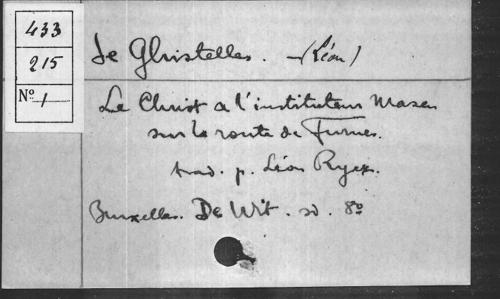 433
215
Nº 1
de Ghistelles. (Léon)
Le Christ a l'instituteur Masen
sur la route de Furnes.
trad. p. Léon Ryex.
Bruxelles. De Wit. sd. 8º